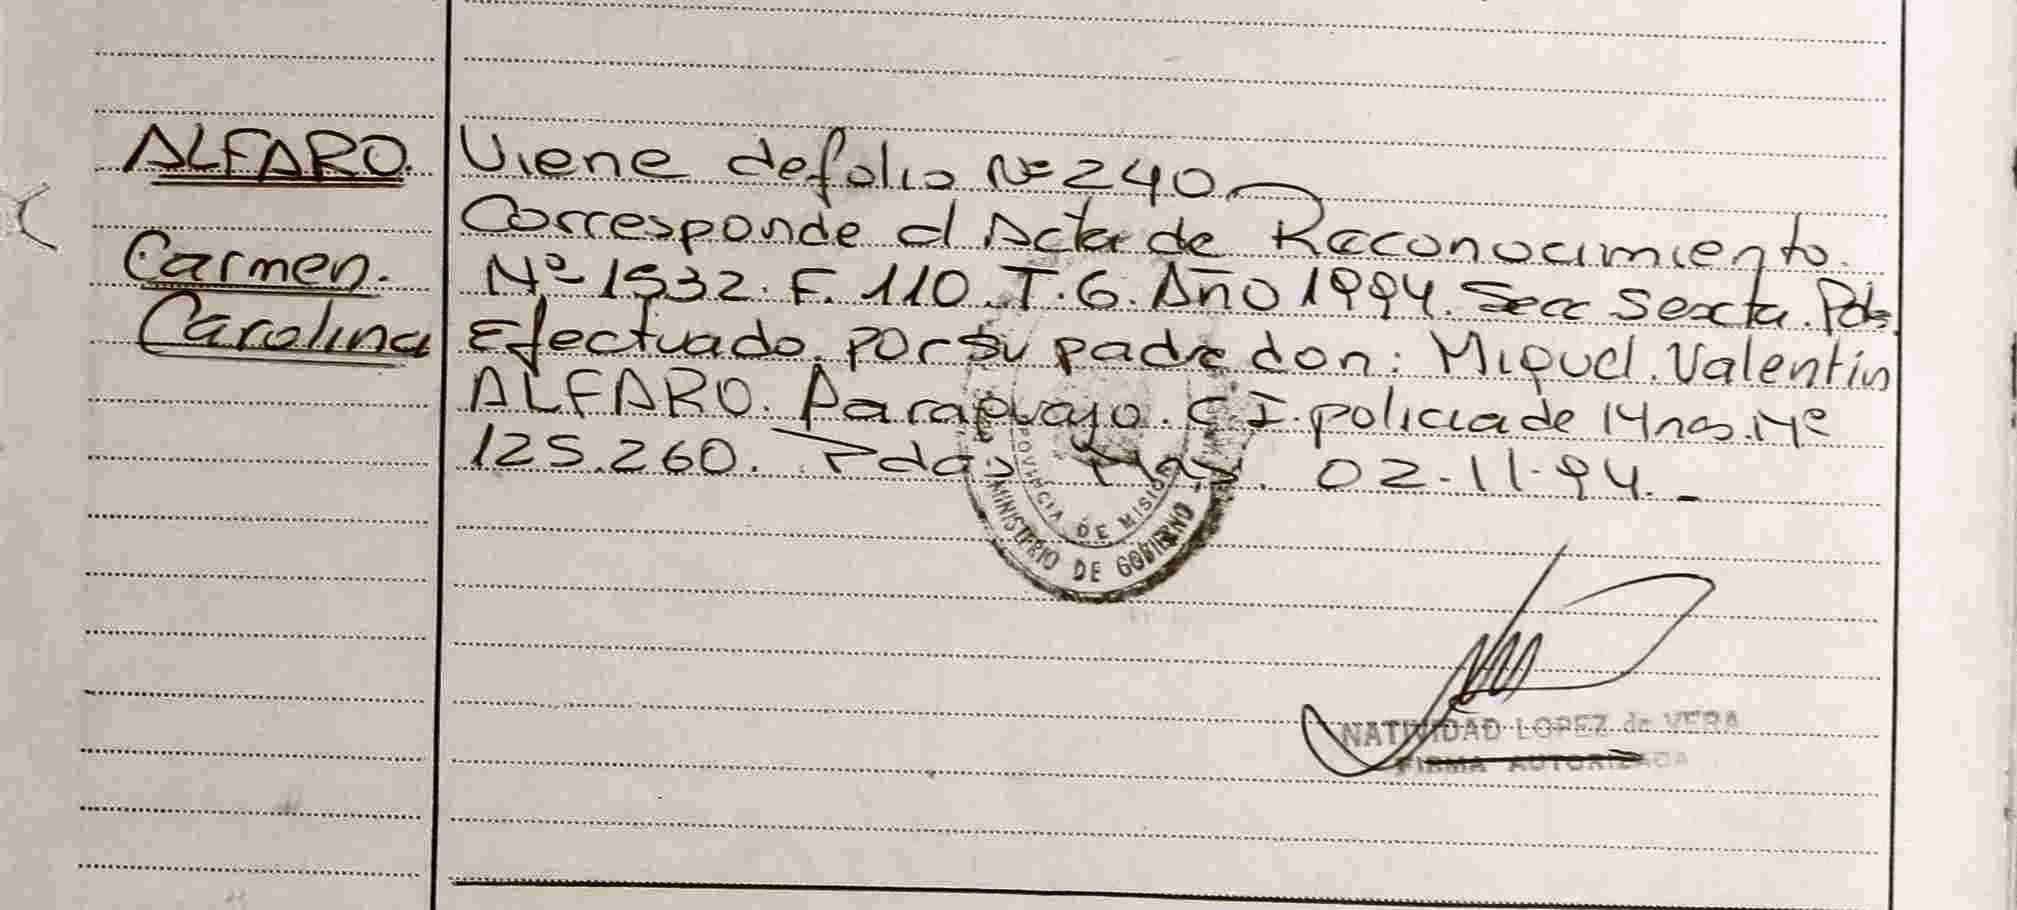 ALFARO.
Carmen.
Carolina
Viene de folio Nº 240
Corresponde al Acta de Reconocimiento.
Nº 1532. F. 110. T. 6. Año 1994. Secc Sexta. Pdas.
Efectuado. por su padre don: Miguel. Valentin
ALFARO. Paraguayo. C.I. policia de Mnes. Nº
125.260. Pdas Mnes. 02.11.94._
PROVINCIA DE MISIONES
MINISTERIO DE GOBIERNO
NATIVIDAD LOPEZ de VERA
FIRMA AUTORIZADA